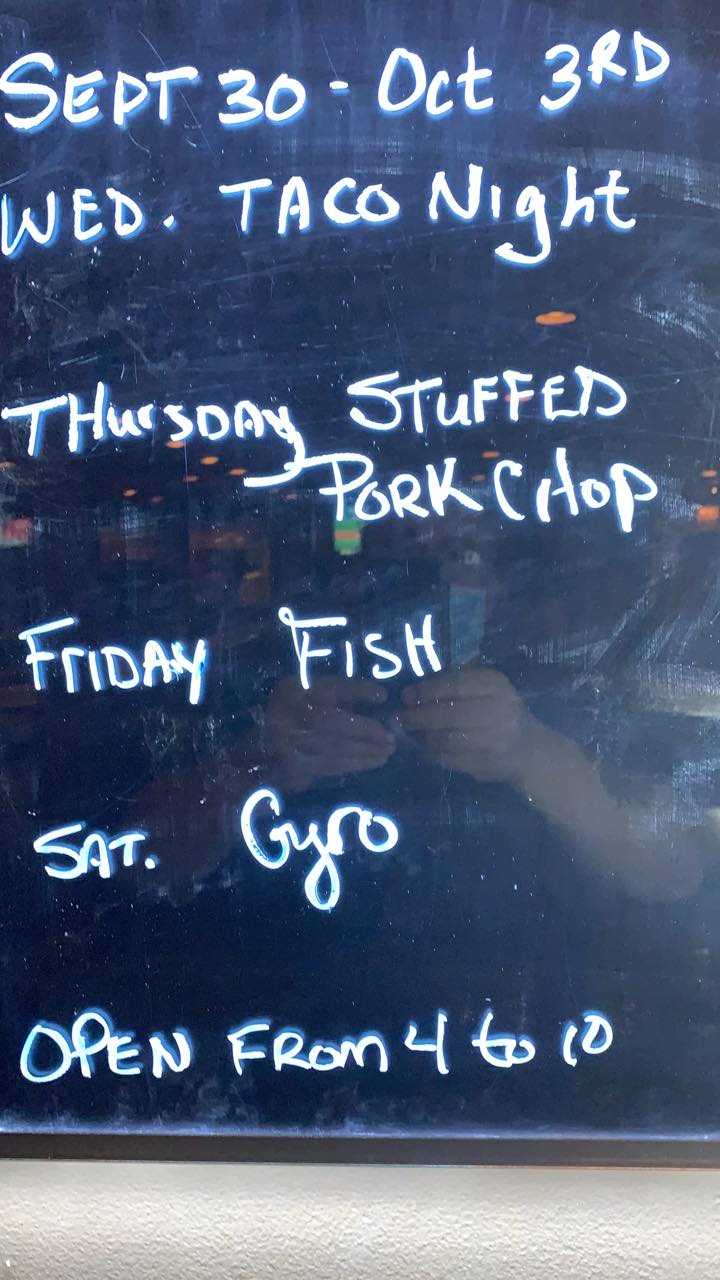 SEPT 30 - Oct 3RD
WED. TACO Night
THURSDAY STUFFED
PORK CHOP
FRIDAY FISH
SAT. Gyro
OPEN FROM 4 to 10